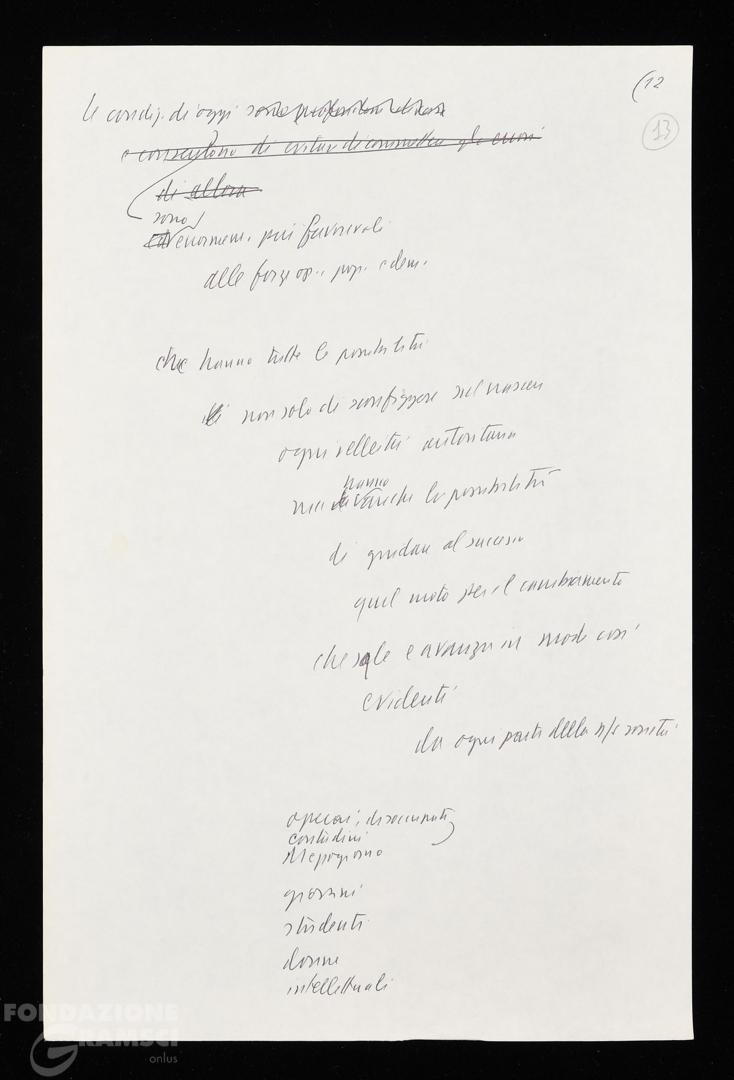 (12
13
le condiz. di oggi sono profondam. diverse
e consentono di evitar di commettere gli errori
di allora
sono
enormem. più favorevoli
alle forze op. pop. e dem.
che hanno tutte le possibilità
non solo di sconfiggere sul nascere
ogni velleità autoritaria
hanno
ma anche la possibilità
di guidare al successo
quel moto per il cambiamento
che sale e avanza in modo così
evidente
da ogni parte della n/s società
operai, disoccupati
contadini
Mezzogiorno
giovani
studenti
donne
intellettuali
FONDAZIONE
GRAMSCI
onlus